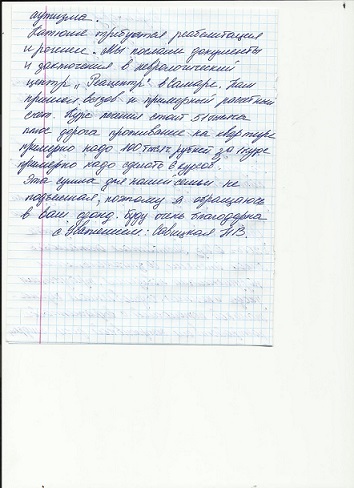 аутизма.
Катюше требуется реабилитация
и лечение. Мы послали документы
и заключения в неврологический
центр „Реацентр" в Самаре. Нам
пришел вызов и примерный расчетный
счет. Курс лечения стоит 51 тысяча
плюс дорога проживание на квартире
примерно надо 100 тысяч рублей за 1 курс
примерно надо сделать курсов.
Эта сумма для нашей семьи не
подъемная, поэтому я обращаюсь
в ваш фонд. Буду очень благодарна
с уважением: Савицкая Н.В.